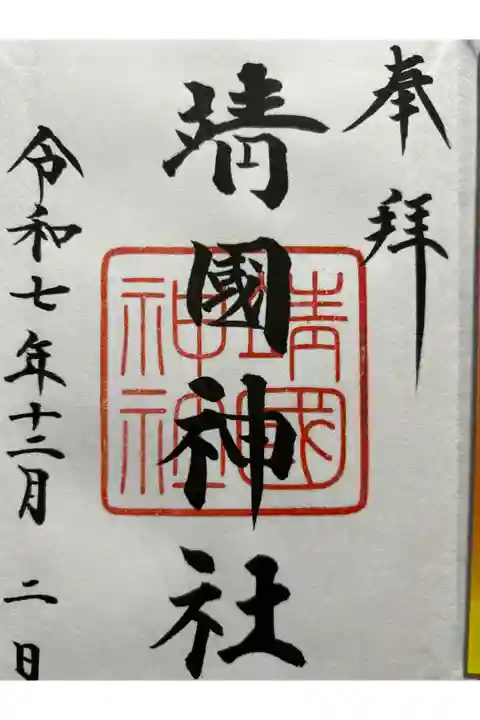 奉拝
靖國神社
靖國
神社
令和七年十二月 二日